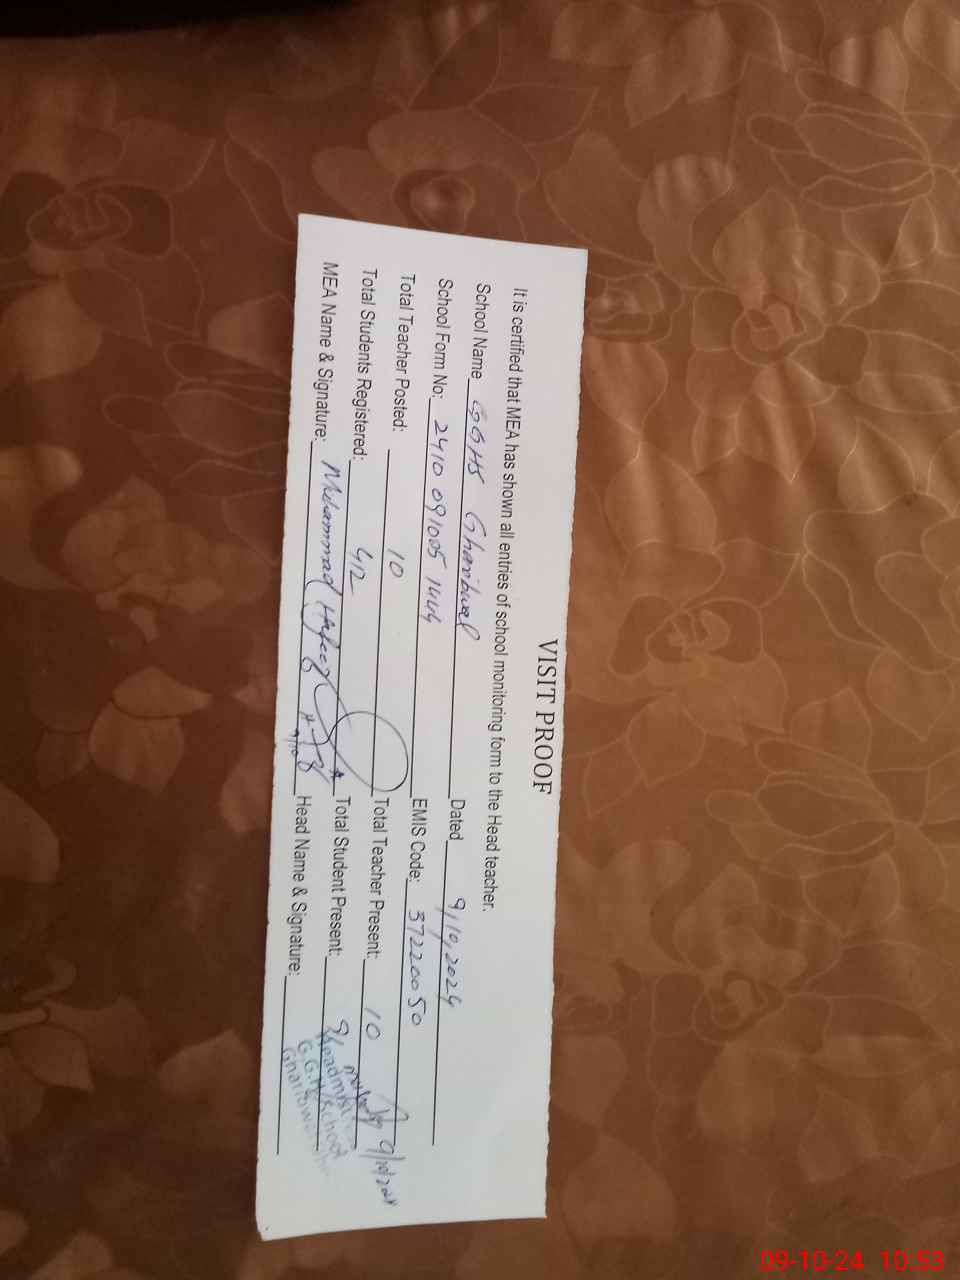 VISIT PROOF
It is certified that MEA has shown all entries of school monitoring form to the Head teacher.
School Name GGHS Gharibwal Dated 9/10/2024
School Form No: 2410 091005 1444 EMIS Code: 37220050
Total Teacher Posted: 10 Total Teacher Present: 10
Total Students Registered: 412 Total Student Present:
MEA Name & Signature: Muhammad Hafeez Head Name & Signature:
9/10
9/10/2024
Headmistress
G.G.H/School
Gharibwal
09-10-24 10:53